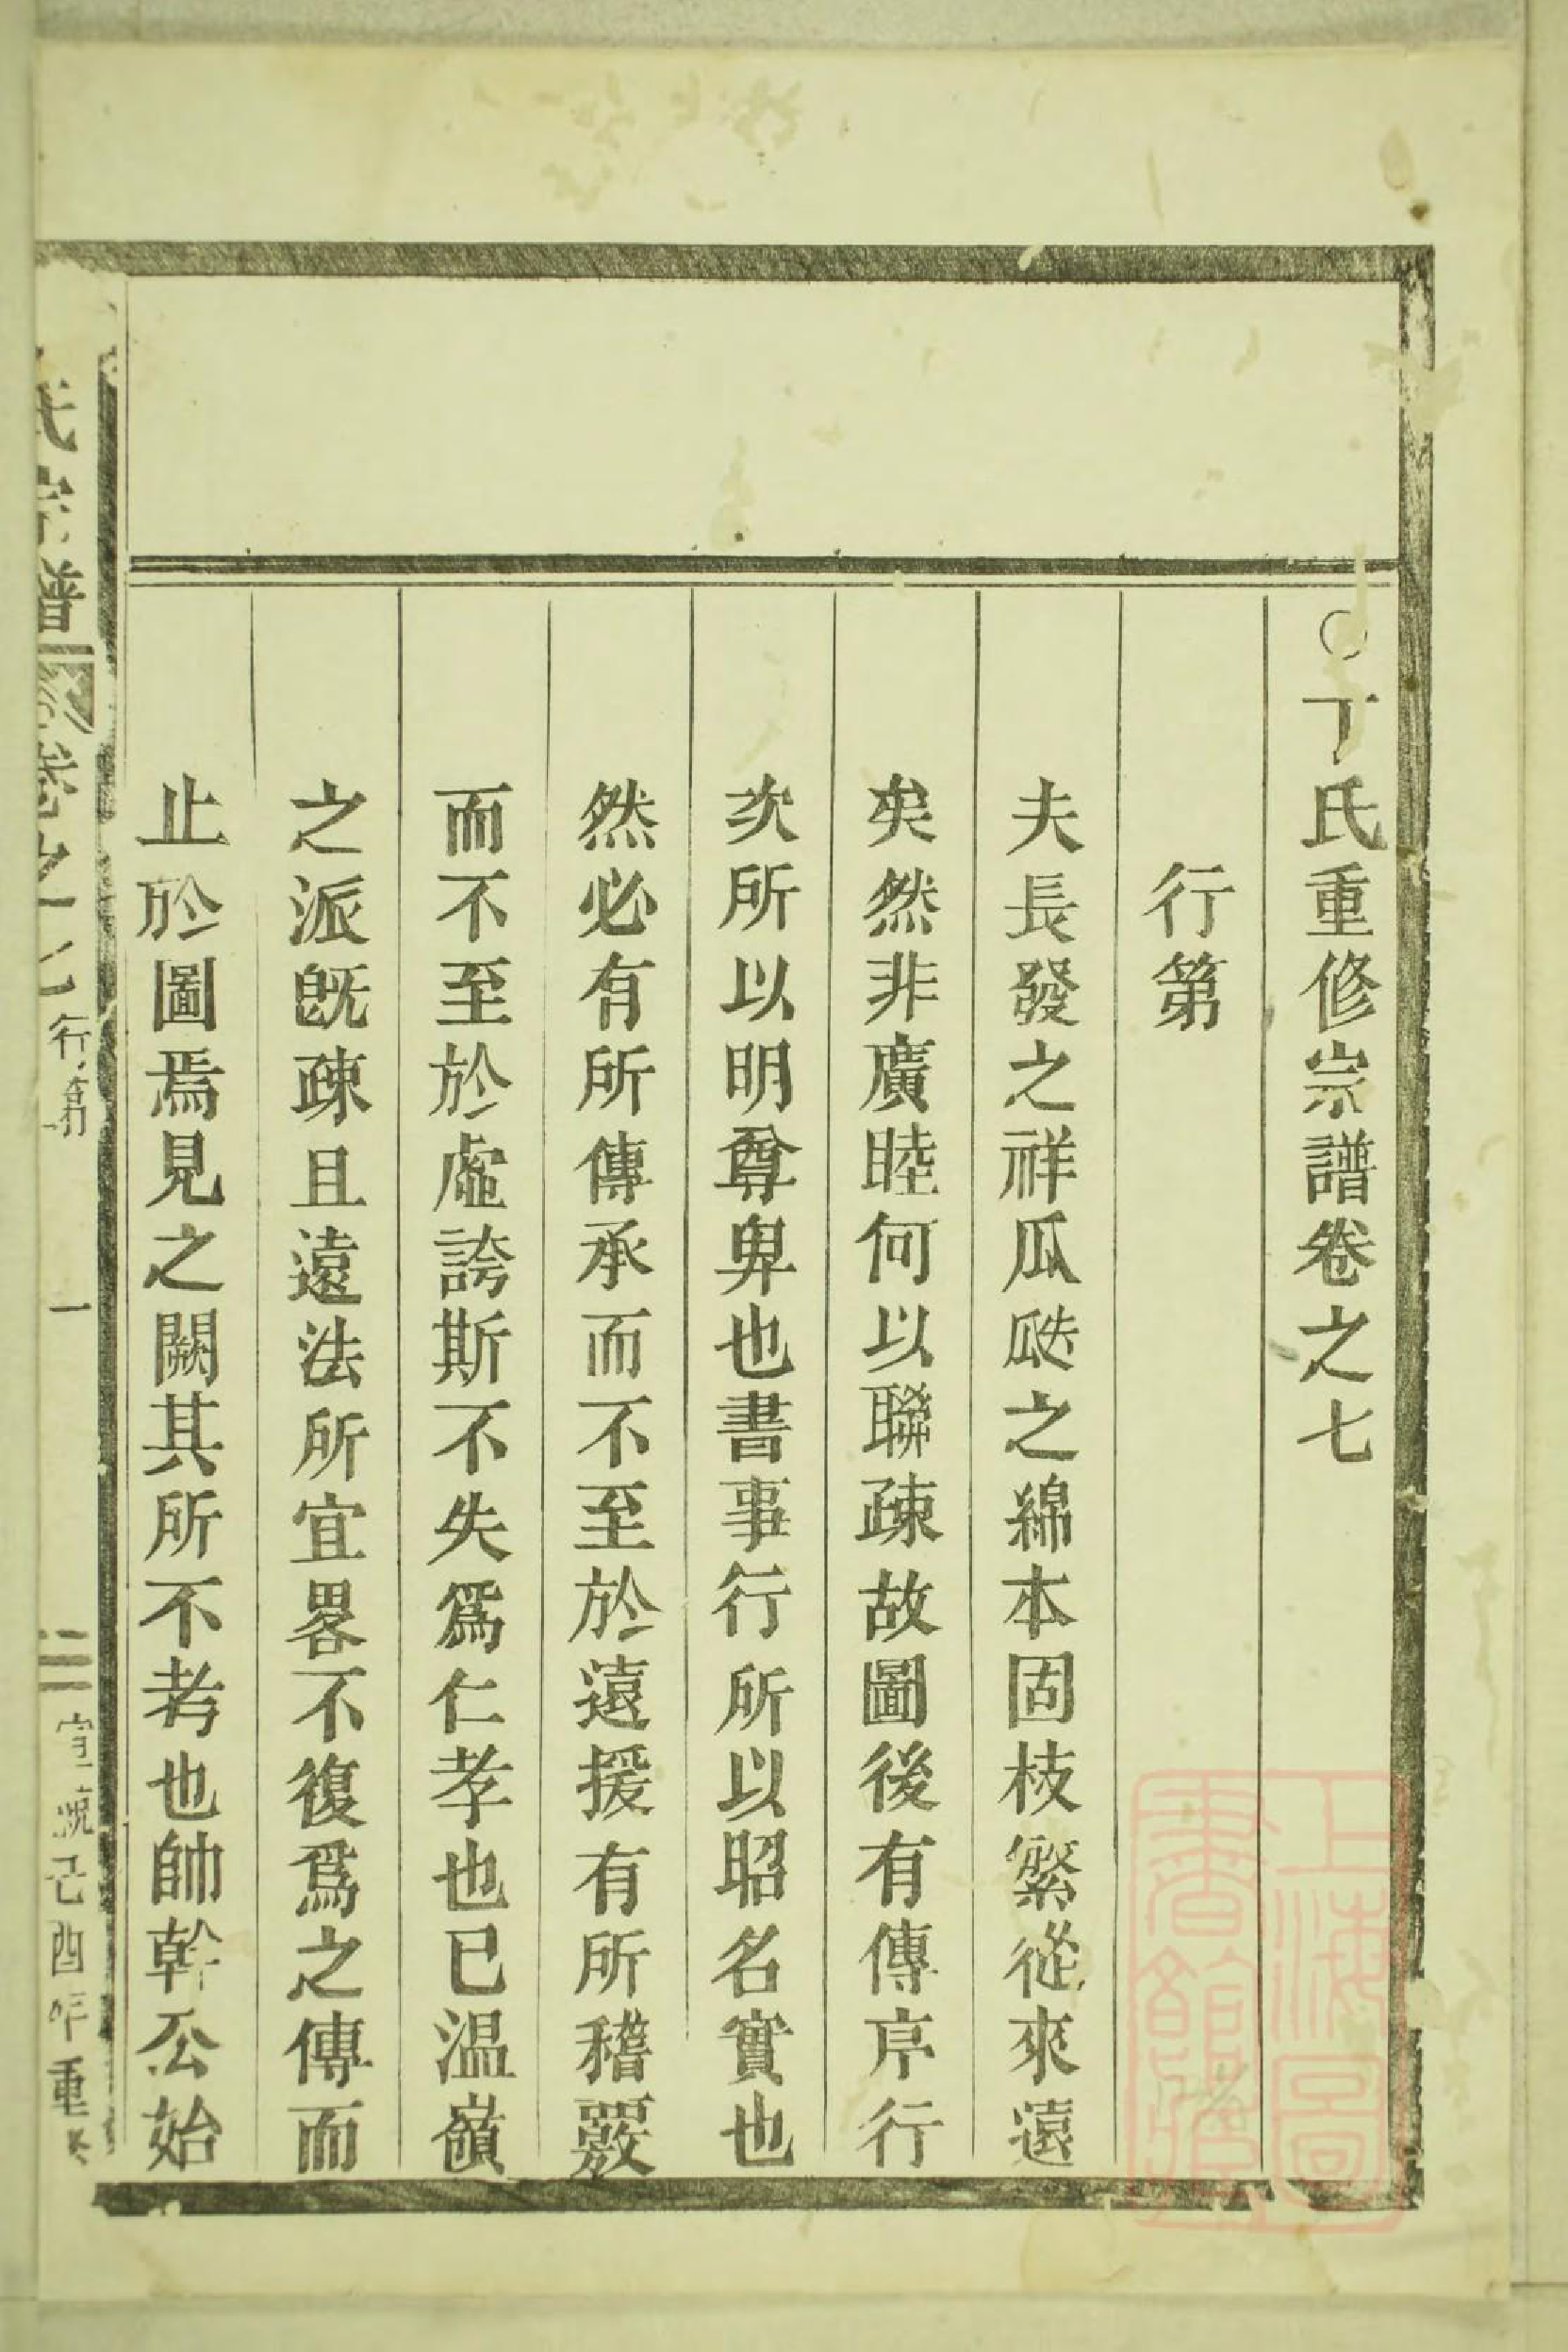 ○丁氏重修宗譜卷之七
行第
夫長發之祥瓜瓞之綿本固枝繁從來遠
矣然非廣睦何以聯疎故圖後有傳序行
次所以明尊卑也書事行所以昭名實也
然必有所傳承而不至於遠援有所稽覈
而不至於虛誇斯不失爲仁孝也已温嶺
之派旣疎且遠法所宜畧不復爲之傳而
止於圖焉見之闕其所不考也帥幹公始
氏宗譜 卷之七 行第 一 宣統己酉年重修
上海圖書館藏